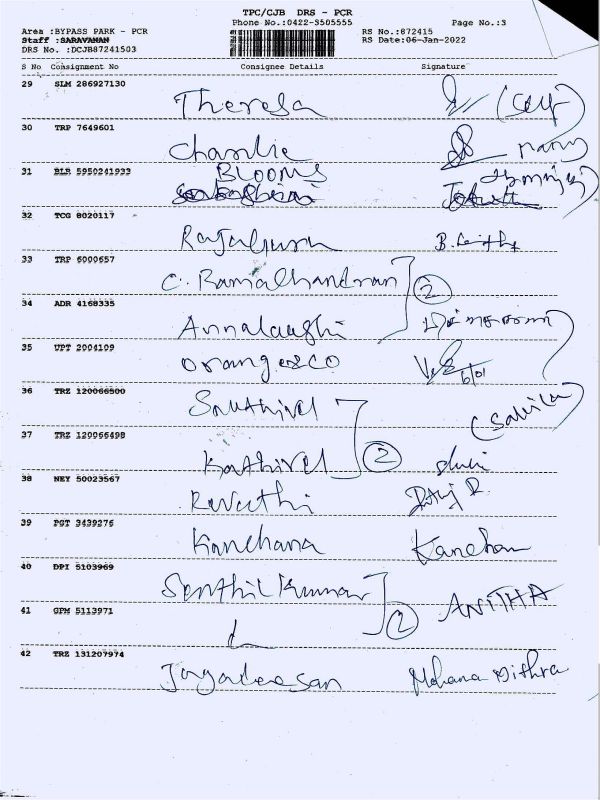 TPC/CJB DRS - PCR
Phone No.:0422-3505555 Page No.:3
Area :BYPASS PARK - PCR RS No.:872415
Staff :SARAVANAN RS Date:06-Jan-2022
DRS No. :DCJB87241503
S No Consignment No Consignee Details Signature
29 SLM 286927130
Theresa (Self)
30 TRP 7649601
Charlie
31 BLR 5950241933 BLOOMS
32 TCG 8020117
33 TRP 6000657
C. Ramachandran 2
34 ADR 4168335
35 UPT 2004109
Orange & Co 6/01
36 TRZ 120066500
Sakthivel (Sabila)
37 TRZ 120066498
Kathirvel 2
38 NEY 50023567
Revathi
39 PGT 3439276
Kanchana Kanchan
40 DPI 5103969
Senthil Kumar ANITHA
41 GPM 5113971 2
42 TRZ 131207974
Jagadeesan Mohana Mithra